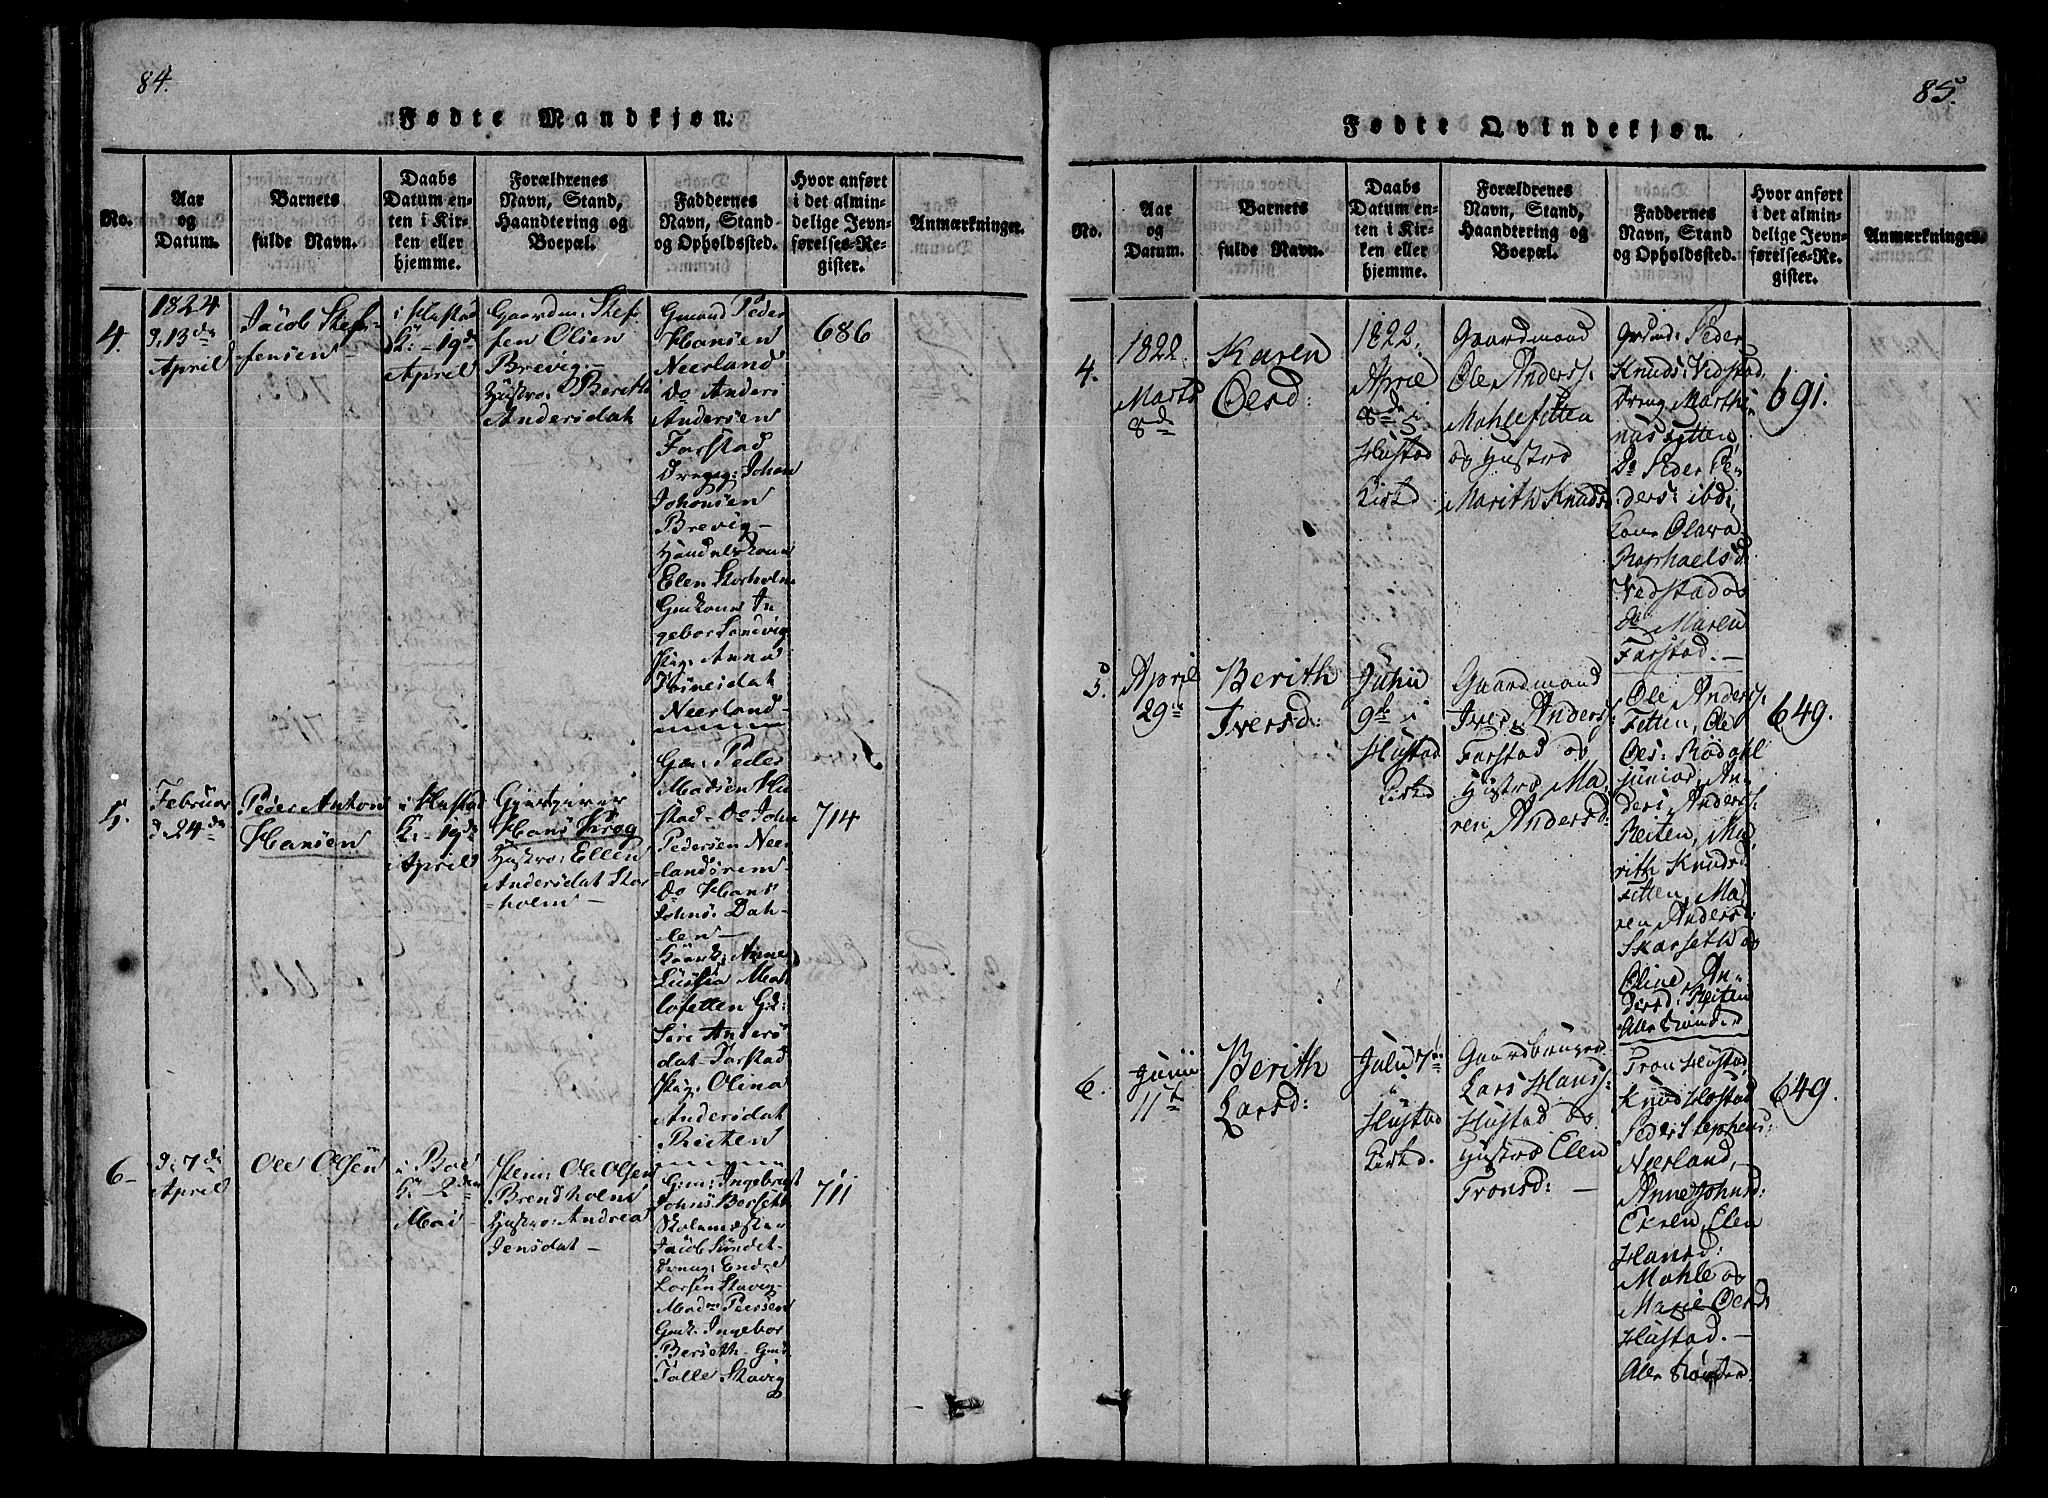 84.
Fødte Mandkjøn.
No.
Aar
og
Datum.
Barnets
fulde Navn.
Daabs
Datum en-
ten i Kir-
ken eller
hjemme.
Forældrenes
Navn, Stand,
Haandtering og
Boepæl.
Faddernes
Navn, Stand
og Opholdssted.
Hvor anført
i det almin-
delige Jevn-
førelses-Re-
gister.
Anmærkninger.
4.
1824
d. 13de
April
Jacob Stef-
fensen
i Hustad
K: - 19de
April
Gaardm: Stef
fen Olsen
Brevig -
Hustro: Berith
Andersdat
Gmand Peder
Hansen
Neerland
Do Anders
Andersen
Farstad
Dreng: Johan
Johansen
Brevig -
Handelskone
Elen Storholm
Gmkone In
gebor Sandvig
Pig: Anna
Neerland -
686
5.
Februar
d. 24de
Peder Anton
Hansen
i Hustad
K: - 19de
April
Gjestgiver
Hans Krog
Hustro: Ellen
Andersdat Stor
holm -
Gm: Peder
Madsen Hu
stad - Do John
Pedersen Neer
landsrem -
Do Hans
Johns: Dah-
len -
Anne
Mah
lefetten
Siri Anders
dat - Farstad
Pig: Olina
Andersdat
Reiten
714
6 -
d. 7de
April
Ole Olsen
i Boe
K: - 2den
Mai -
Ole Olsen
Brendholm
Hustro: Andrea
Jensdat -
Gm: Ingebrigt
Johns Berseth
Skolemester
Jacob Sundet -
Dreng: Endre
Larsen Stavig
Madm Peersen
Gmk. Ingebor
Berseth - Gmk
Talle Stavig
711
85.
Fødte Qvindekjøn.
No.
Aar
og
Datum.
Barnets
fulde Navn.
Daabs
Datum en-
ten i Kir-
ken eller
hjemme.
Forældrenes
Navn, Stand,
Haandtering og
Boepæl.
Faddernes
Navn, Stand
og Opholdssted.
Hvor anført
i det almin-
delige Jevn-
førelses-Re-
gister.
Anmærkninger.
4.
1822.
Marts
8de
Karen
Olesd:
1822.
April
8de i
Hustad
Kirke
Gaardmand
Ole Anderss:
Mahlefetten
og Hustro
Marith Knudsd
Peder
Knuds: Vedstad,
Dreng Marthi
nus Fetten,
Do Peder Pe-
ders: ibd:,
Kone Olava
Raphaelsd
Vedstad og
do Maren
Farstad. -
691.
5.
April
29de
Berith
Iversd:
Junii
9de i
Hustad
Kirke
Gaardmand
Iver Anderss:
Farstad og
Hustro Ma
ren Andersd:
Ole Anderss:
Fetten, Ole
Oles: Rødahl
junior, An-
ders Anderss:
Reiten, Ma
rith Knudsd:
Fetten, Ma
ren Andersd:
Skarseth og
Oline An-
dersd: Reiten
Alle Bønder
649.
6.
Junii
11te
Berith
Larsd:
Julii 7de
i
Hustad
Kirke.
Gaardbruger
Lars Hanss:
Hustad og
Hustro Elen
Tronsd: -
Tron Hustad,
Knud Hustad
Peder Stephens:
Nærland, -
Anne Johnsd:
Ekren, Elen
Hansd:
Mahle og
Marie Olesd:
Hustad. -
Alle Bønder
649.